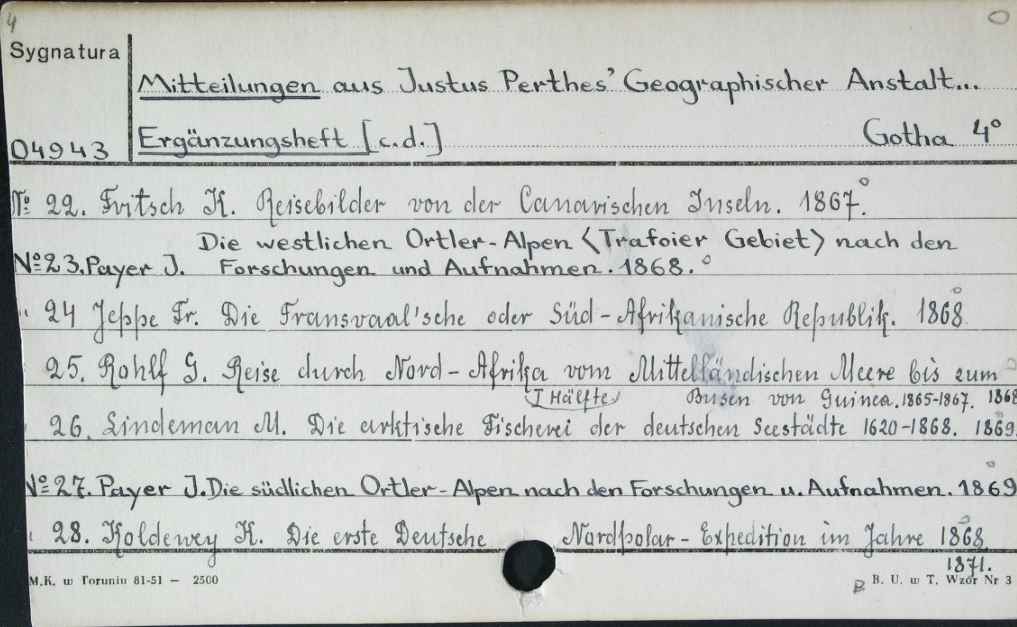 4
Sygnatura
Mitteilungen aus Justus Perthes' Geographischer Anstalt...
04943 Ergänzungsheft [c.d.] Gotha 4°
№ 22. Fritsch K. Reisebilder von der Canarischen Inseln. 1867.°
Die westlichen Ortler-Alpen <Trafoier Gebiet> nach den
№ 23. Payer J. Forschungen und Aufnahmen. 1868.°
" 24 Jeppe Fr. Die Transvaal'sche oder Süd-Afrikanische Republik. 1868°
25. Rohlf G. Reise durch Nord-Afrika vom Mittelländischen Meere bis zum
I Hälfte Busen von Guinea. 1865-1867. 1868
26. Lindeman M. Die arktische Fischerei der deutschen Seestädte 1620-1868. 1869.
№ 27. Payer J. Die südlichen Ortler-Alpen nach den Forschungen u. Aufnahmen. 1869°
" 28. Koldewey K. Die erste Deutsche Nordpolar-Expedition im Jahre 1868
1871.
M.K. w Toruniu 81-51 — 2500 B B. U. w T. Wzór Nr 3